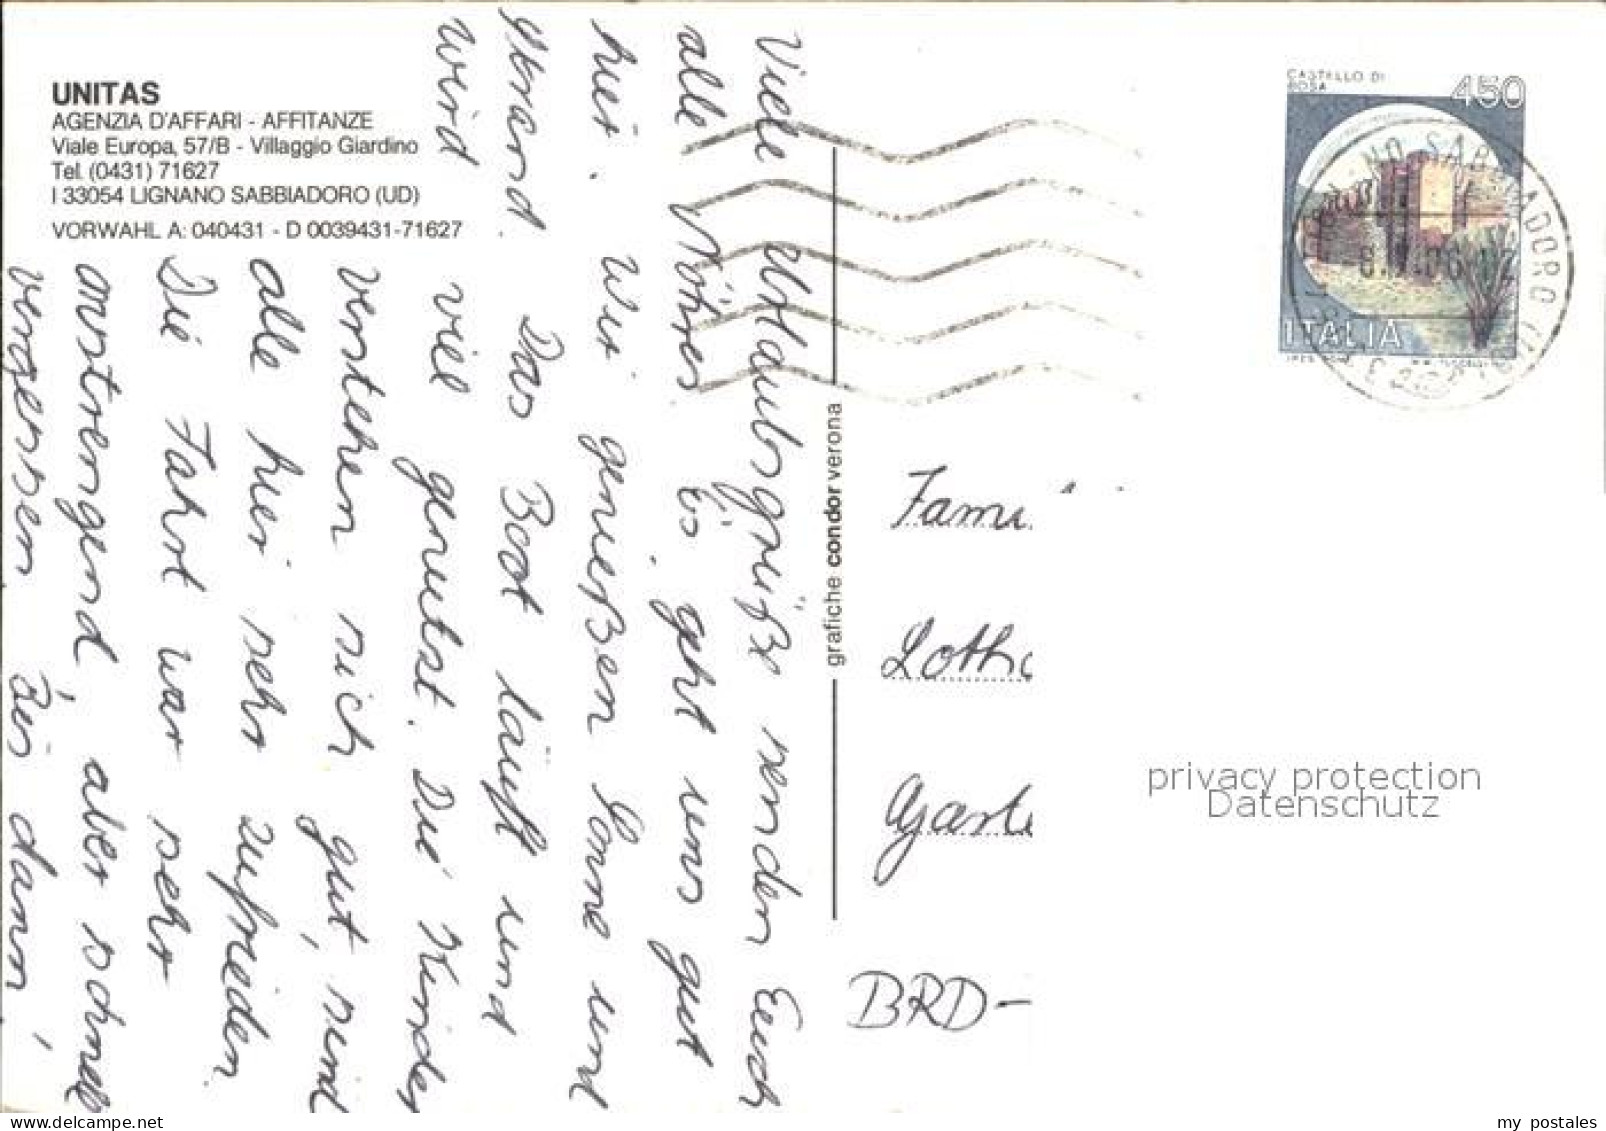 UNITAS
AGENZIA D'AFFARI - AFFITANZE
Viale Europa, 57/B - Villaggio Giardino
Tel. (0431) 71627
I 33054 LIGNANO SABBIADORO (UD)
VORWAHL A: 040431 - D 0039431-71627
Viele Urlaubsgrüße senden Euch
alle Es geht uns gut
hier. Wir genießen Sonne und
Strand. Das Boot läuft und
wird viel genutzt. Die Kinder
verstehen sich gut, sind
alle hier sehr zufrieden.
Die Fahrt war sehr
anstrengend, aber schnell
vergessen. Bis dann!
grafiche condor verona
CASTELLO DI
ROSA
450
ITALIA
Fami
Lotha
Garte
BRD-
privacy protection
Datenschutz
my postales